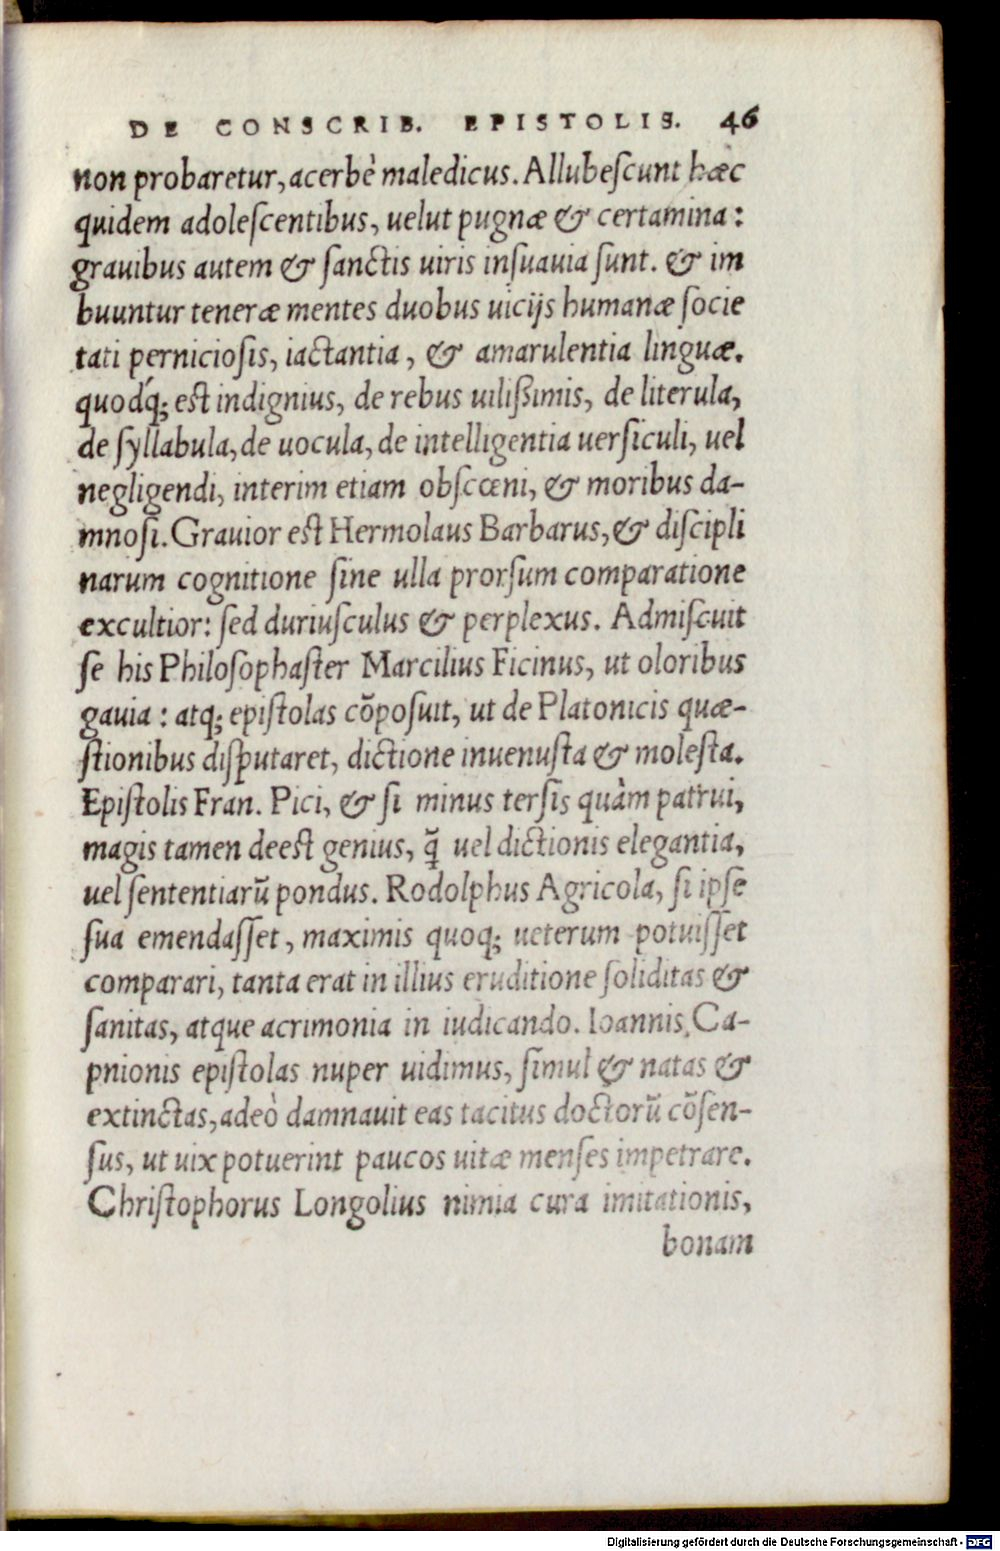 DE CONSCRIB. EPISTOLIS. 46
non probaretur, acerbè maledicus. Allubeſcunt hæc
quidem adoleſcentibus, uelut pugnæ & certamina:
grauibus autem & ſanctis uiris inſuauia ſunt. & im
buuntur teneræ mentes duobus uicijs humanæ ſocie
tati pernicioſis, iactantia, & amarulentia linguæ.
quodq́; est indignius, de rebus uilißimis, de literula,
de ſyllabula, de uocula, de intelligentia uerſiculi, uel
negligendi, interim etiam obſcœni, & moribus da-
mnoſi. Grauior est Hermolaus Barbarus, & diſcipli
narum cognitione ſine ulla prorſum comparatione
excultior: ſed duriuſculus & perplexus. Admiſcuit
ſe his Philoſophaſter Marcilius Ficinus, ut oloribus
gauia: atq; epiſtolas cõpoſuit, ut de Platonicis quæ-
ſtionibus diſputaret, dictione inuenuſta & moleſta.
Epiſtolis Fran. Pici, & ſi minus terſis quàm patrui,
magis tamen deest genius, q̃ uel dictionis elegantia,
uel ſententiarũ pondus. Rodolphus Agricola, ſi ipſe
ſua emendaſſet, maximis quoq; ueterum potuiſſet
comparari, tanta erat in illius eruditione ſoliditas &
ſanitas, atque acrimonia in iudicando. Ioannis Ca-
pnionis epiſtolas nuper uidimus, ſimul & natas &
extinctas, adeò damnauit eas tacitus doctorũ cõſen-
ſus, ut uix potuerint paucos uitæ menſes impetrare.
Chriſtophorus Longolius nimia cura imitationis,
bonam
Digitalisierung gefördert durch die Deutsche Forschungsgemeinschaft - DFG